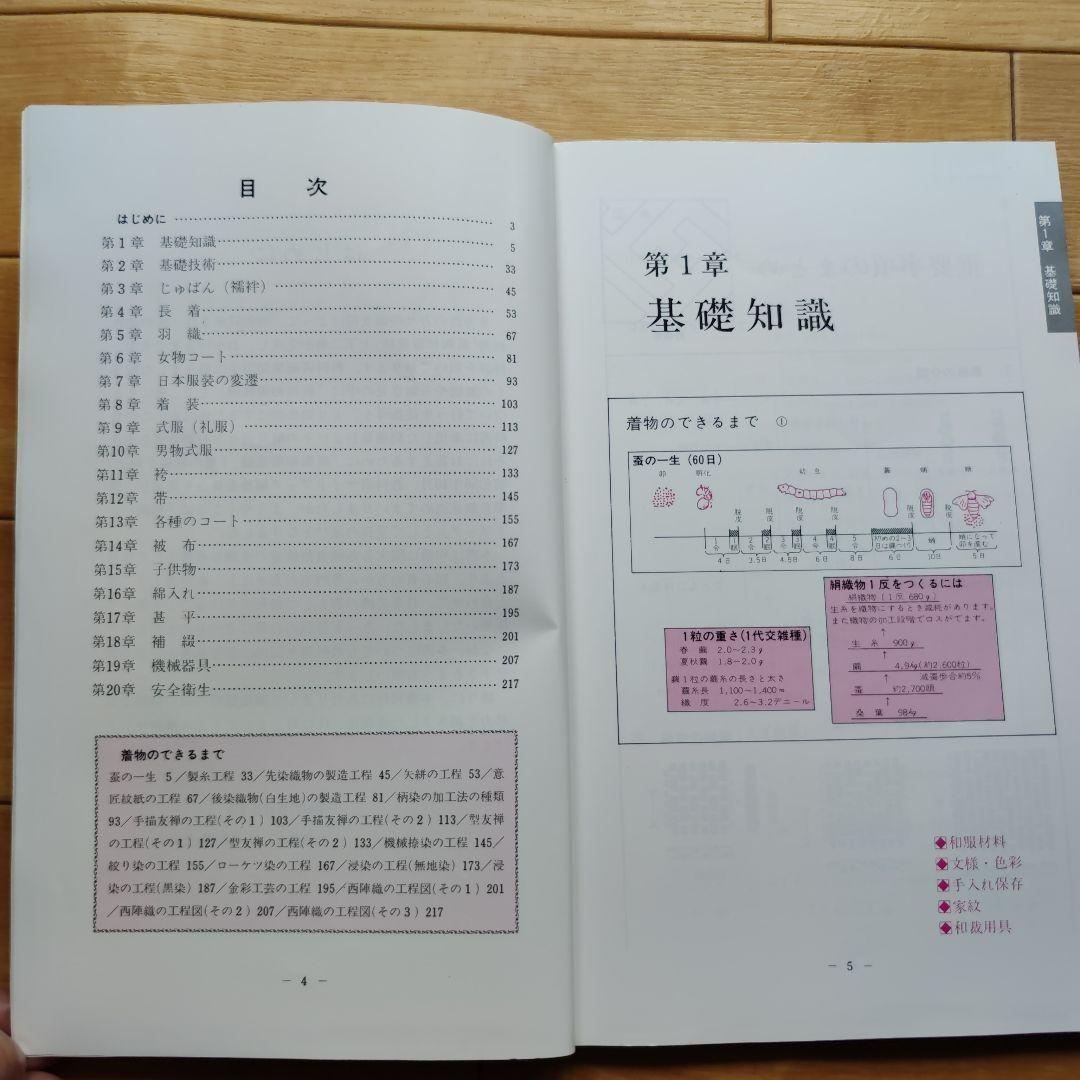 目 次
はじめに 3
第1章 基礎知識 5
第2章 基礎技術 33
第3章 じゅばん(襦袢) 45
第4章 長 着 53
第5章 羽 織 67
第6章 女物コート 81
第7章 日本服装の変遷 93
第8章 着 装 103
第9章 式服(礼服) 113
第10章 男物式服 127
第11章 袴 133
第12章 帯 145
第13章 各種のコート 155
第14章 被 布 167
第15章 子供物 173
第16章 綿入れ 187
第17章 甚 平 195
第18章 補 綴 201
第19章 機械器具 207
第20章 安全衛生 217
着物のできるまで
蚕の一生 5/製糸工程 33/先染織物の製造工程 45/矢絣の工程 53/意
匠紋紙の工程 67/後染織物(白生地)の製造工程 81/柄染の加工法の種類
93/手描友禅の工程(その1) 103/手描友禅の工程(その2) 113/型友禅
の工程(その1) 127/型友禅の工程(その2) 133/機械捺染の工程 145/
絞り染の工程 155/ローケツ染の工程 167/浸染の工程(無地染) 173/浸
染の工程(黒染) 187/金彩工芸の工程 195/西陣織の工程図(その1) 201
/西陣織の工程図(その2) 207/西陣織の工程図(その3) 217
— 4 —
第1章 基礎知識
第1章
基礎知識
着物のできるまで ①
蚕の一生(60日)
卵 孵化 幼虫 繭 蛹 蛾
脱皮 脱皮 脱皮 脱皮 脱皮 脱皮
1令 1眠 2令 2眠 3令 3眠 4令 4眠 5令 初めの2~3日は繭つくり 蛹 蛾になって卵を産む
4日 3.5日 4.5日 6日 8日 6日 10日 5日
1粒の重さ(1代交雑種)
春 繭 2.0~2.3g
夏秋繭 1.8~2.0g
繭1粒の繭糸の長さと太さ
繭糸長 1,100~1,400m
繊 度 2.6~3.2デニール
絹織物1反をつくるには
絹織物(1反 680g)
生糸を織物にするとき減耗があります。
また織物の加工段階でロスがでます。
↑
生 糸 900g
↑
繭 4.9kg(約2,600粒)
↑ 減蚕歩合約5%
蚕 約2,700頭
↑
桑 葉 98kg
和服材料
文様・色彩
手入れ保存
家紋
和裁用具
— 5 —